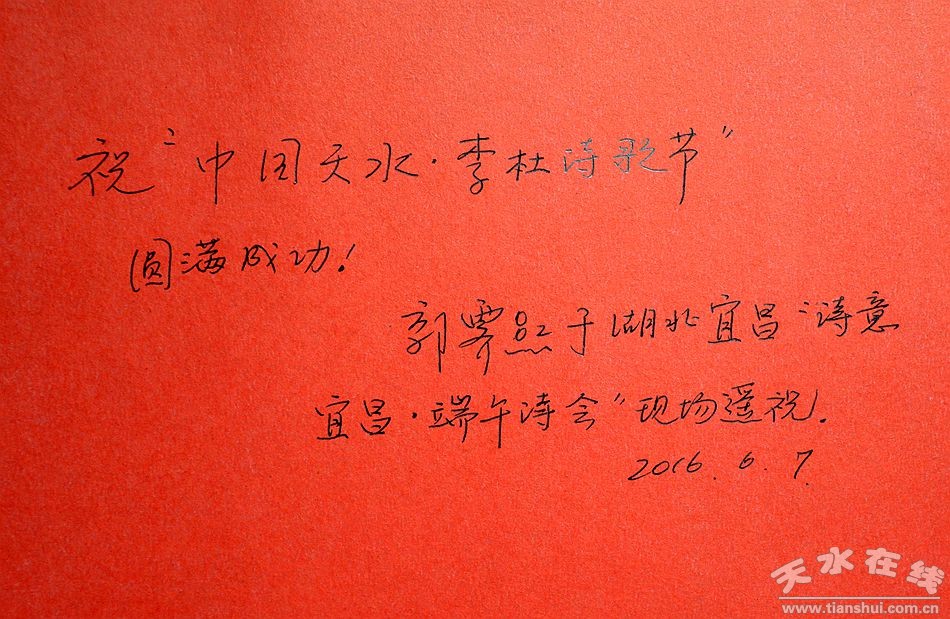 祝“中国天水·李杜诗歌节”
圆满成功!
郭霁红于湖北宜昌“诗意
宜昌·端午诗会”现场遥祝.
2016.6.7.
天水在线
www.tianshui.com.cn